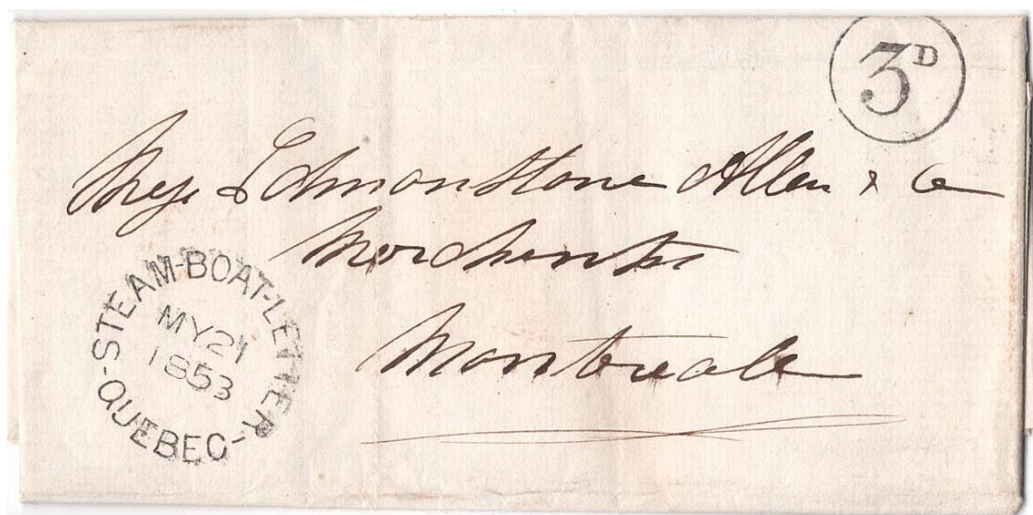 3D
Messrs Edmonstone Allan & Co
Merchants
Montreal
STEAM-BOAT-LETTER
MY 21
1853
-QUEBEC-